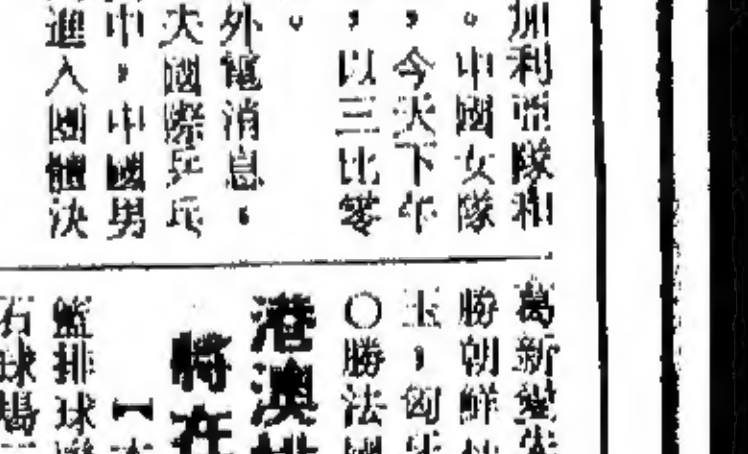 加利亚隊和
。中國女隊
，今天下午
，以三比零
。
外電消息，
大國際乒乓
中，中國男
進入團體決
葛新堡
勝朝鮮
玉，匈牙
〇勝法國
港澳排
將在
【本
籃排球
石球場